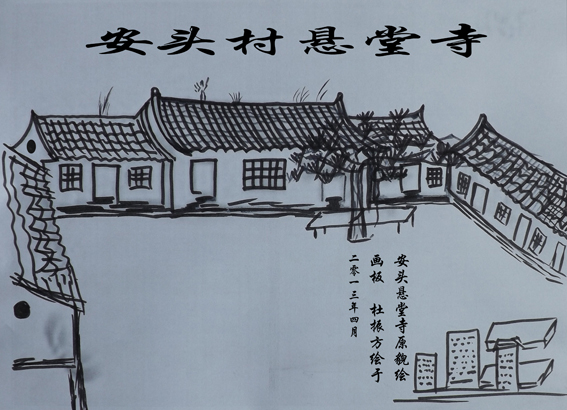 安头村悬堂寺
安头悬堂寺原貌绘
画板 杜振方绘于
二零一三年四月